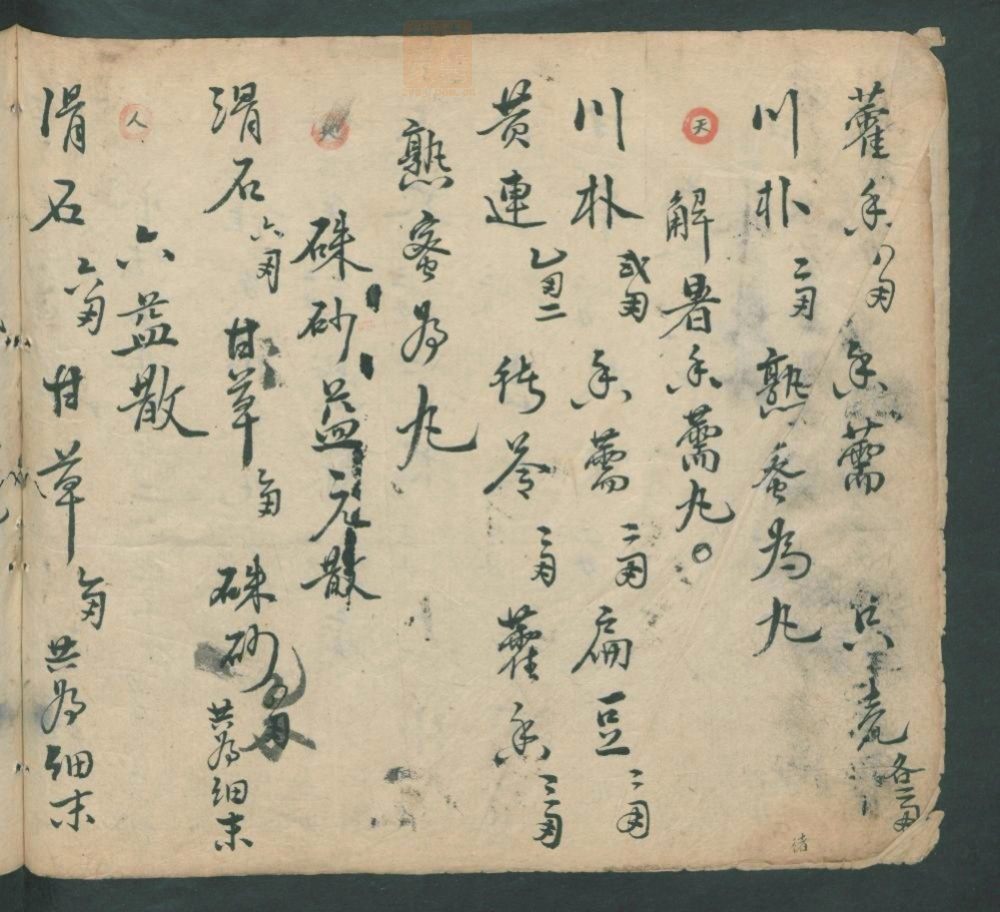 藿香八两 香薷 只壳 各二两
川朴 二两 熟蜜為丸
天 解暑香薷丸。
川朴 弍两 香薷 二两 扁豆 二两
黄連 乙两二 茯苓 二两 藿香 三两
熟蜜為丸
硃砂益元散
滑石 六两 甘草 一两 硃砂 共為細末
人 六益散
滑石 六两 甘草 一两 共為細末